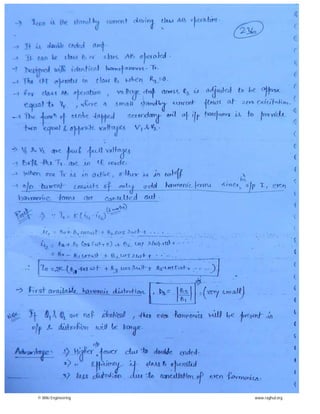 → Zero is the stand by current during class AB operation.
236
→ It is double ended amp.
→ It can be class B or class AB operated.
→ Designed with identical transistors Tr.
→ The ckt operates in class B, when R2 = 0.
→ For class AB operation, voltage drop across R2 is adjusted to be approx
equal to Vγ, where a small standby current flows at zero excitation.
→ The function of centre tapped secondary coil of i/p transformer is to provide
two equal & opposite voltages V1 & V2.
→ V1 & V2 are push pull voltages
→ Both the Trs are in CE mode.
→ When one Tr is in active, other is in cutoff
→ o/p current consists of only odd harmonic terms since, o/p I, even
harmonic terms are cancelled out.
Proof
→ First available harmonic distortion D3 = |B3/B1| = (very small)
Note: If Q1 & Q2 are not identical, then even harmonics will be present in
o/p & distortion will be large.
Advantage: 1) Higher o/p power due to double ended.
2) " Efficiency if class B operated
3) less distortion due to cancellation of even harmonics.
© Wiki Engineering
www.raghul.org